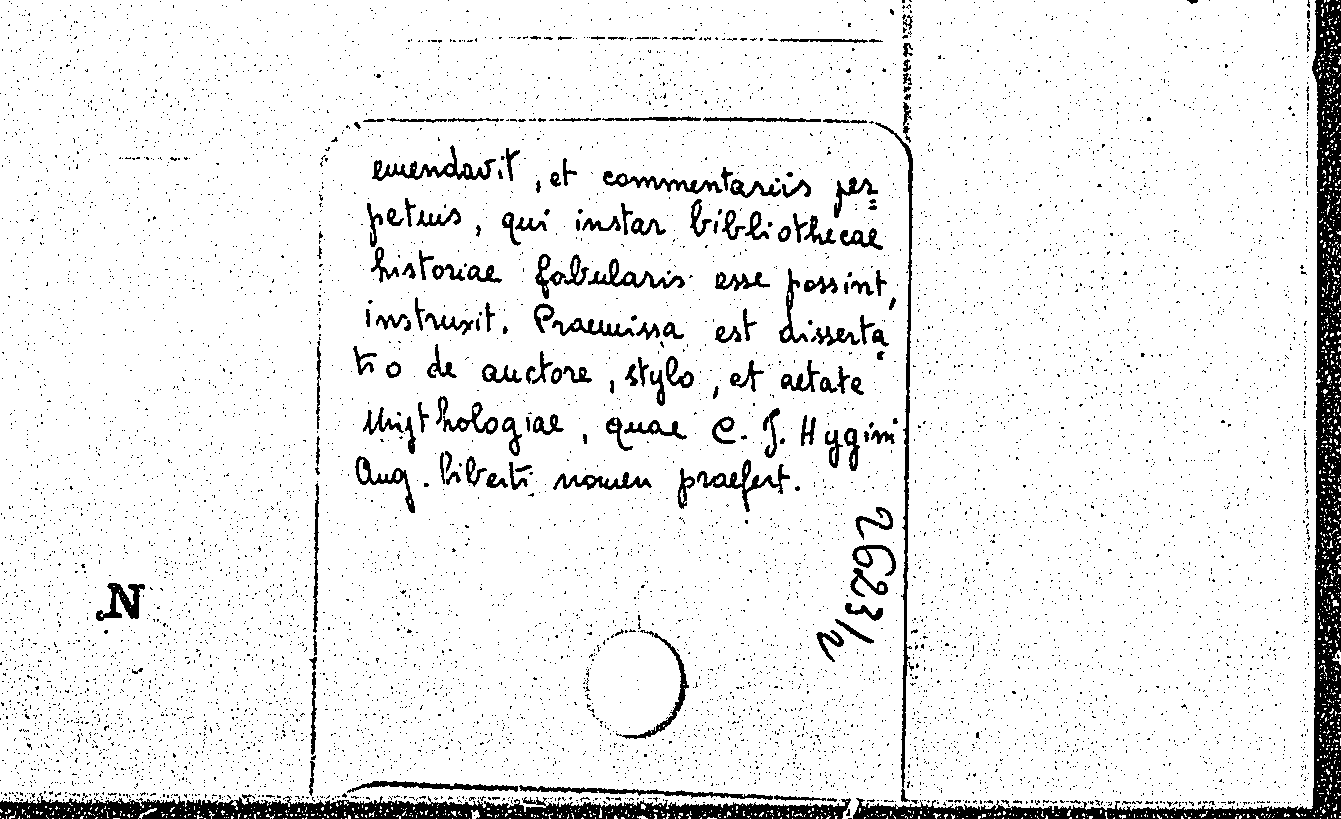 emendavit, et commentariis per=
petuis, qui instar bibliothecae
historiae fabularis esse possint,
instruxit. Praemissa est disserta
tio de auctore, stylo, et aetate
Mythologiae, quae C. J. Hygini
Aug. liberti nomen praefert.
2623/2
N